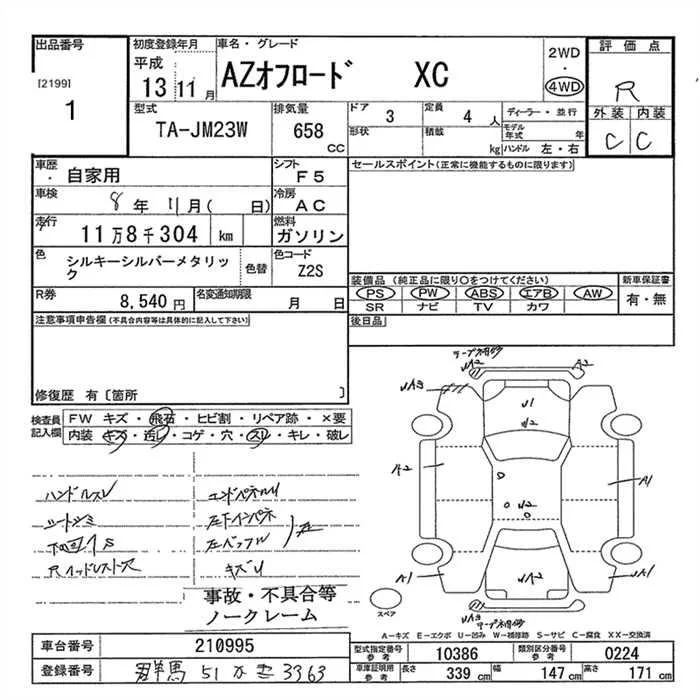 出品番号
[2199]
1
初度登録年月
平成
13 11月
車名・グレード
AZオフロード XC
2WD
・
4WD
評価点
R
外装 内装
C C
型式
TA-JM23W
排気量
658
CC
ドア
3
定員
4 人
形状
積載
kg
ディーラー・並行
モデル
年式 年
ハンドル 左・右
車歴
・自家用
シフト
F5
車検
8年 11月( 日)
冷房
AC
走行
11万8千304 km
燃料
ガソリン
色
シルキーシルバーメタリック
色替
色コード
Z2S
R券
8,540円
名変通知期限
月 日
セールスポイント(正常に機能するものに限ります)
装備品 (純正品に限り○をつけてください)
PS PW ABS エアB AW
SR ナビ TV カワ
新車保証書
有・無
後日品
注意事項申告欄(不具合内容等は具体的に記入して下さい)
修復歴 有〔箇所 〕
検査員
記入欄
FW キズ・飛石・ヒビ割・リペア跡・×要
内装 キズ・汚レ・コゲ・穴・スレ・キレ・破レ
ハンドルスレ
エンドパネルU
キズU
事故・不具合等
ノークレーム
A2
A2
A1
A1
スペア
A-キズ E-エクボ U-凹み W-補修跡 S-サビ C-腐食 XX-交換済
車台番号
210995
登録番号
群馬 51 3363
型式指定番号
参考
10386
類別区分番号
参考
0224
車庫証明用
参考
長さ
339 cm
幅
147 cm
高さ
171 cm